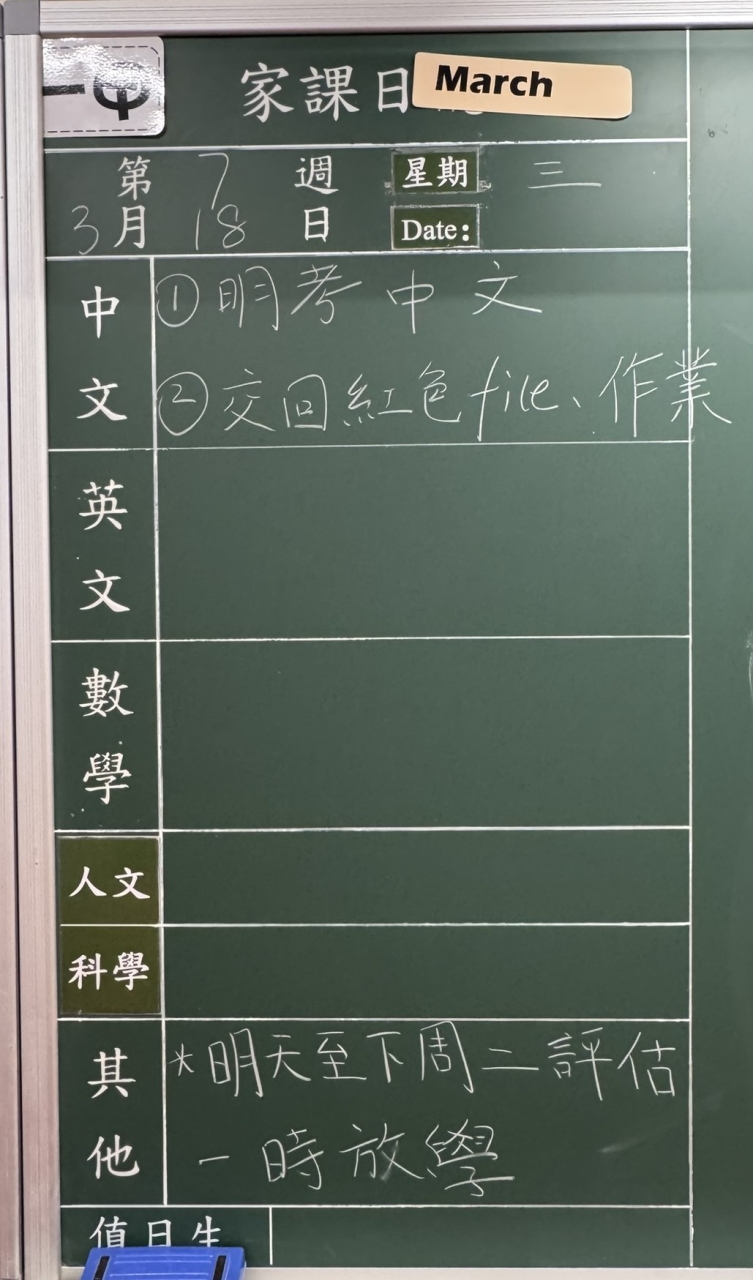 一甲
家課日
March
第 7 週 星期 三
3月 18 日 Date:
中文
①明考中文
②交回紅色file、作業
英文
數學
人文
科學
其他
*明天至下周二評估
一時放學
值日生